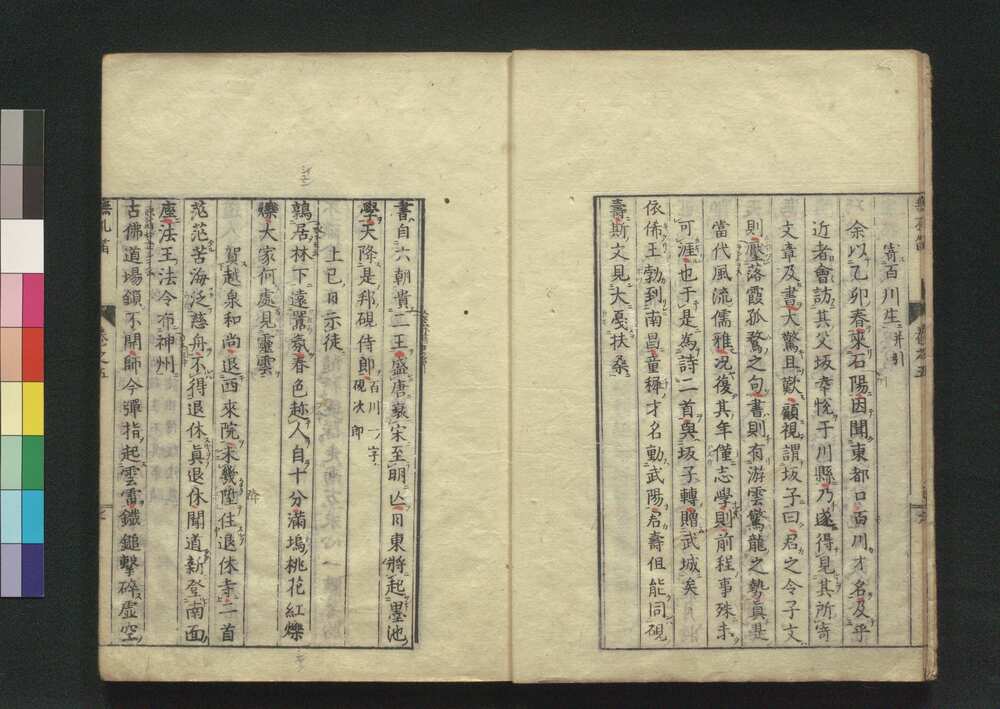 寄百川生 并引
余以乙卯春來石陽因聞東都口百川才名及乎
近者會訪其父坂幸悅于川縣乃遂得見其所寄
文章及書大驚且歎顧視謂坂子曰君之令子文
則壓落霞孤鶩之句書則有游雲驚龍之勢眞是
當代風流儒雅況復其年僅志學則前程事殊未
可涯也于是為詩二首與坂子轉贈武城矣
依俙王勃到南昌童穉才名動武陽君壽但能同硯
壽斯文見大戞扶桑
書自六朝貴二王盛唐衰宋至明亡日東將起墨池
學天降是邦硯侍郎 百川一字硯次郎
上巳日示徒
鶉居林下遠囂氛春色趂人自十分滿塢桃花紅爍
爍大家何處見靈雲
賀越泉和尚退西來院未幾陞住退休寺二首
茫茫苦海泛慈舟不得退休眞退休聞道新登南面
座法王法令布神州
古佛道場鎖不開師今彈指起雲雷鐵鎚擊碎虛空
無孔笛
卷之五